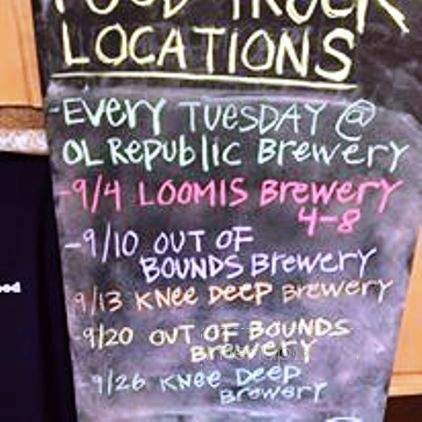 FOOD TRUCK
LOCATIONS
-EVERY TUESDAY @
OL RePublic Brewery
-9/4 LOOMIS Brewery
4-8
-9/10 OUT OF
BOUNDS Brewery
9/13 KNee DeeP Brewery
-9/20 OUT OF BOUNDS
Brewery
9/26 KNee Deep
Brewery